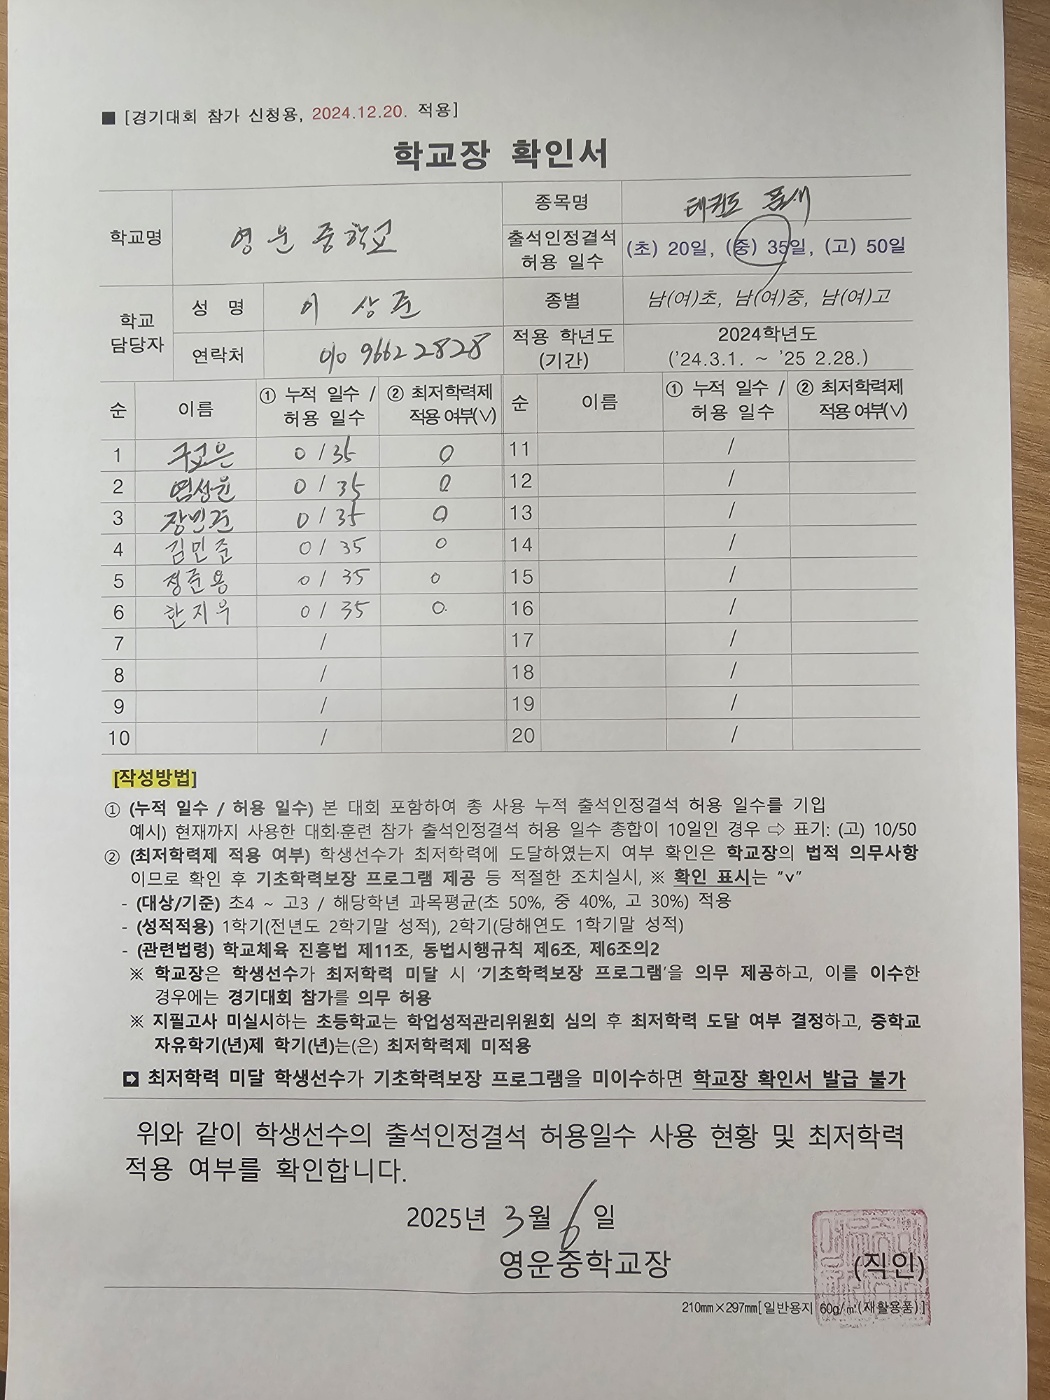 ■ [경기대회 참가 신청용, 2024.12.20. 적용]
학교장 확인서
학교명 영운중학교
종목명 태권도 품새
출석인정결석 허용 일수 (초) 20일, (중) 35일, (고) 50일
학교 담당자
성 명 이상준
종별 남(여)초, 남(여)중, 남(여)고
연락처 010 9662 2828
적용 학년도 (기간) 2024학년도 ('24.3.1. ~ '25 2.28.)
순 이름 ① 누적 일수 / 허용 일수 ② 최저학력제 적용 여부(∨) 순 이름 ① 누적 일수 / 허용 일수 ② 최저학력제 적용 여부(∨)
1 구교은 0 / 35 0 11 /
2 염상윤 0 / 35 0 12 /
3 장민준 0 / 35 0 13 /
4 김민준 0 / 35 0 14 /
5 정준용 0 / 35 0 15 /
6 한지우 0 / 35 0 16 /
7 / 17 /
8 / 18 /
9 / 19 /
10 / 20 /
[작성방법]
① (누적 일수 / 허용 일수) 본 대회 포함하여 총 사용 누적 출석인정결석 허용 일수를 기입
예시) 현재까지 사용한 대회·훈련 참가 출석인정결석 허용 일수 종합이 10일인 경우 ⇨ 표기: (고) 10/50
② (최저학력제 적용 여부) 학생선수가 최저학력에 도달하였는지 여부 확인은 학교장의 법적 의무사항
이므로 확인 후 기초학력보장 프로그램 제공 등 적절한 조치실시, ※ 확인 표시는 "∨"
- (대상/기준) 초4 ~ 고3 / 해당학년 과목평균(초 50%, 중 40%, 고 30%) 적용
- (성적적용) 1학기(전년도 2학기말 성적), 2학기(당해연도 1학기말 성적)
- (관련법령) 학교체육 진흥법 제11조, 동법시행규칙 제6조, 제6조의2
※ 학교장은 학생선수가 최저학력 미달 시 '기초학력보장 프로그램'을 의무 제공하고, 이를 이수한
경우에는 경기대회 참가를 의무 허용
※ 지필고사 미실시하는 초등학교는 학업성적관리위원회 심의 후 최저학력 도달 여부 결정하고, 중학교
자유학기(년)제 학기(년)는(은) 최저학력제 미적용
➡ 최저학력 미달 학생선수가 기초학력보장 프로그램을 미이수하면 학교장 확인서 발급 불가
위와 같이 학생선수의 출석인정결석 허용일수 사용 현황 및 최저학력
적용 여부를 확인합니다.
2025년 3월 6일
영운중학교장 (직인)
210㎜×297㎜[일반용지 60g/㎡(재활용품)]